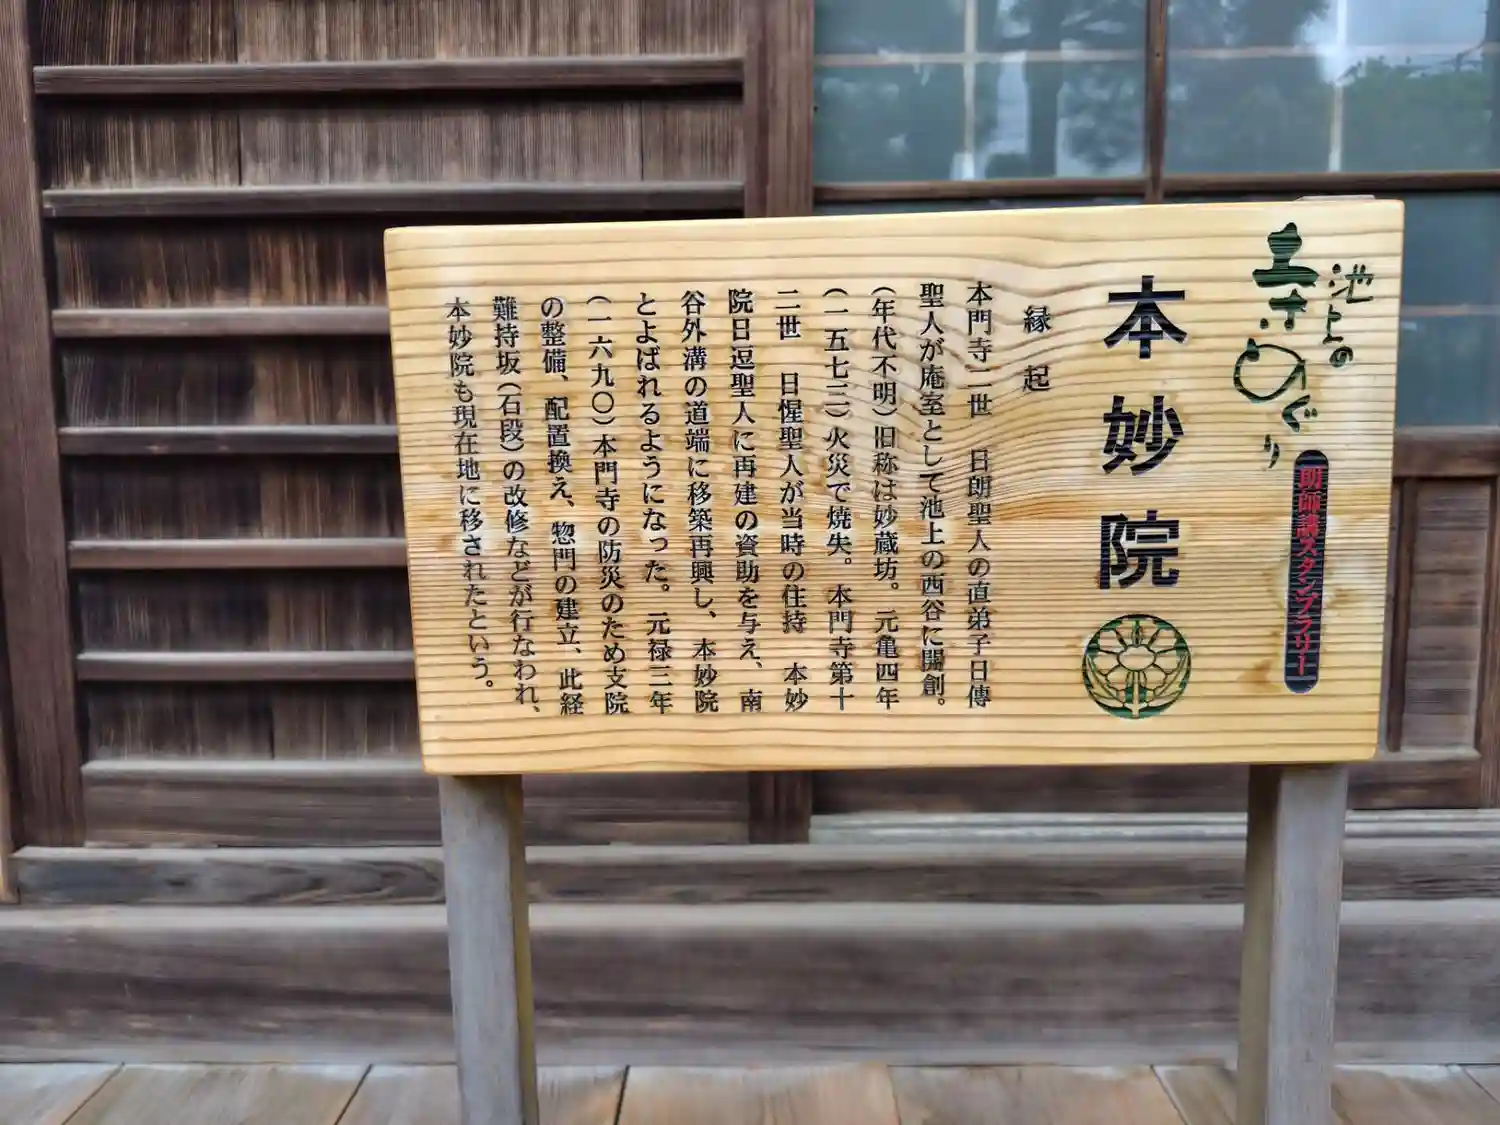 池上の
寺めぐり
朗師講スタンプラリー
本妙院
縁起
本門寺二世　日朗聖人の直弟子日傳
聖人が庵室として池上の西谷に開創。
（年代不明）旧称は妙蔵坊。元亀四年
（一五七三）火災で焼失。本門寺第十
二世　日惺聖人が当時の住持　本妙
院日逗聖人に再建の資助を与え、南
谷外溝の道端に移築再興し、本妙院
とよばれるようになった。元禄三年
（一六九〇）本門寺の防災のため支院
の整備、配置換え、惣門の建立、此経
難持坂（石段）の改修などが行なわれ、
本妙院も現在地に移されたという。